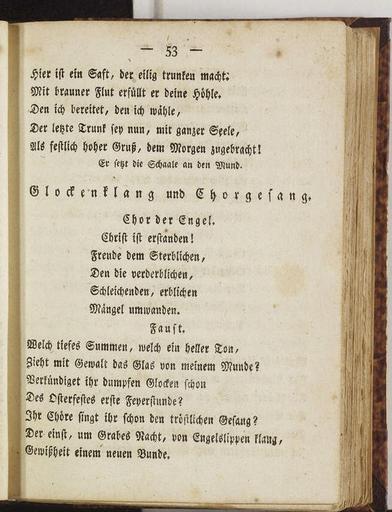 — 53 —
Hier ist ein Saft, der eilig trunken macht.
Mit brauner Flut erfüllt er deine Höhle.
Den ich bereitet, den ich wähle,
Der letzte Trunk sey nun, mit ganzer Seele,
Als festlich hoher Gruß, dem Morgen zugebracht!
Er setzt die Schaale an den Mund.
Glockenklang und Chorgesang.
Chor der Engel.
Christ ist erstanden!
Freude dem Sterblichen,
Den die verderblichen,
Schleichenden, erblichen
Mängel umwanden.
Faust.
Welch tiefes Summen, welch ein heller Ton,
Zieht mit Gewalt das Glas von meinem Munde?
Verkündiget ihr dumpfen Glocken schon
Des Osterfestes erste Feyerstunde?
Ihr Chöre singt ihr schon den tröstlichen Gesang?
Der einst, um Grabes Nacht, von Engelslippen klang,
Gewißheit einem neuen Bunde.